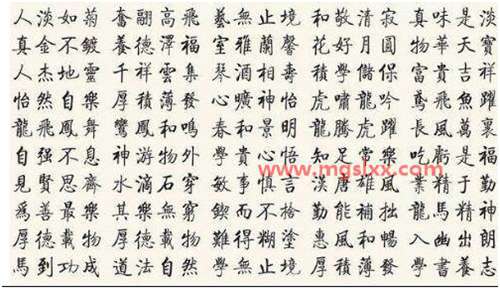 人淡如菊 奮翮高飛 藝無止境 和敬清寂 真味是淡
真金不鍍 養德澤福 室雅蘭馨 花好月圓 物華天寶
人杰地靈 千祥雲集 琴酒相壽 積學儲保 富貴吉祥
怡然自樂 厚積薄發 心曠神怡 虎嘯龍吟 鳶飛魚躍
龍飛鳳舞 鸞鳳和鳴 春和景明 龍騰虎躍 長風萬裏
自强不息 神游物外 學貴心悟 知足常樂 吃虧是福
www.mgslxx.com
見賢思齊 水滴石穿 敏事慎言 漢唐雄風 業精于勤
為善最樂 其樂無窮 鍥而不捨 勤能補拙 龍馬精神
厚德載物 厚德載物 難得糊塗 惠風和暢 入幽出朗
馬到功成 道法自然 學無止境 厚積薄發 學書養志